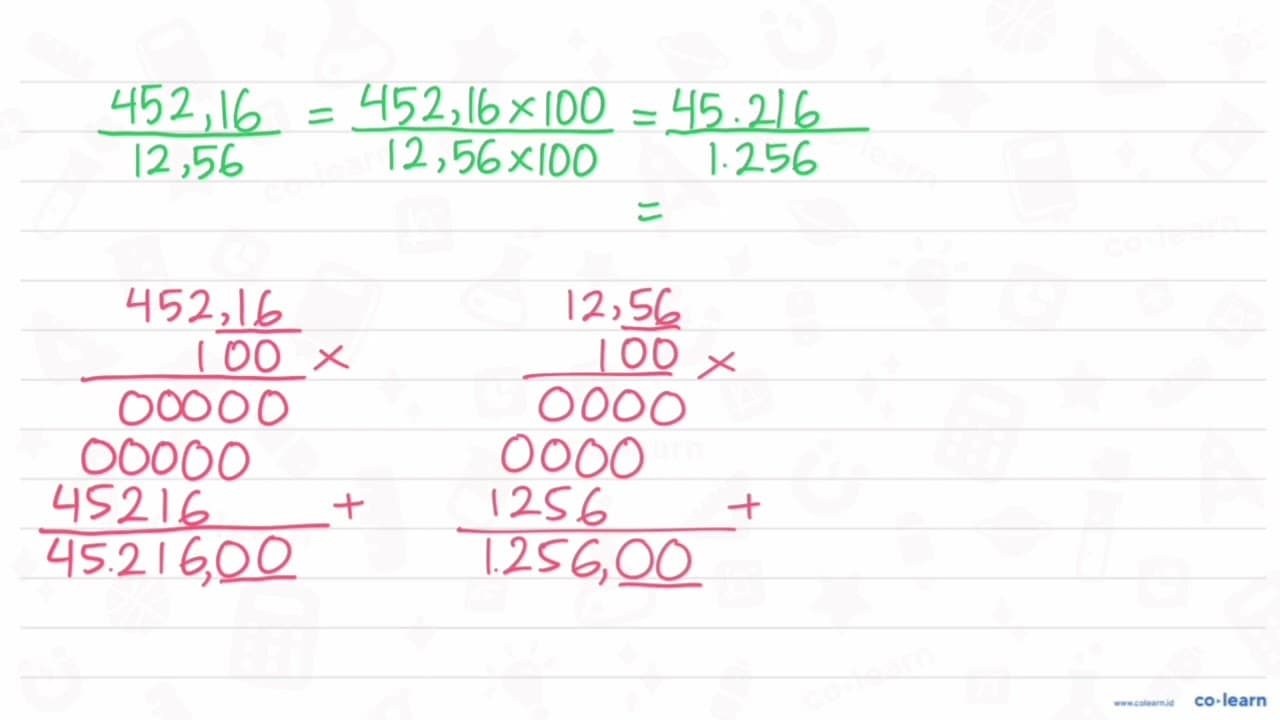 452,16 / 12,56 = 452,16 × 100 / 12,56 × 100 = 45.216 / 1.256
=
452,16
100 ×
00000
00000
45216 +
45.216,00
12,56
100 ×
0000
0000
1256 +
1.256,00
www.colearn.id co·learn